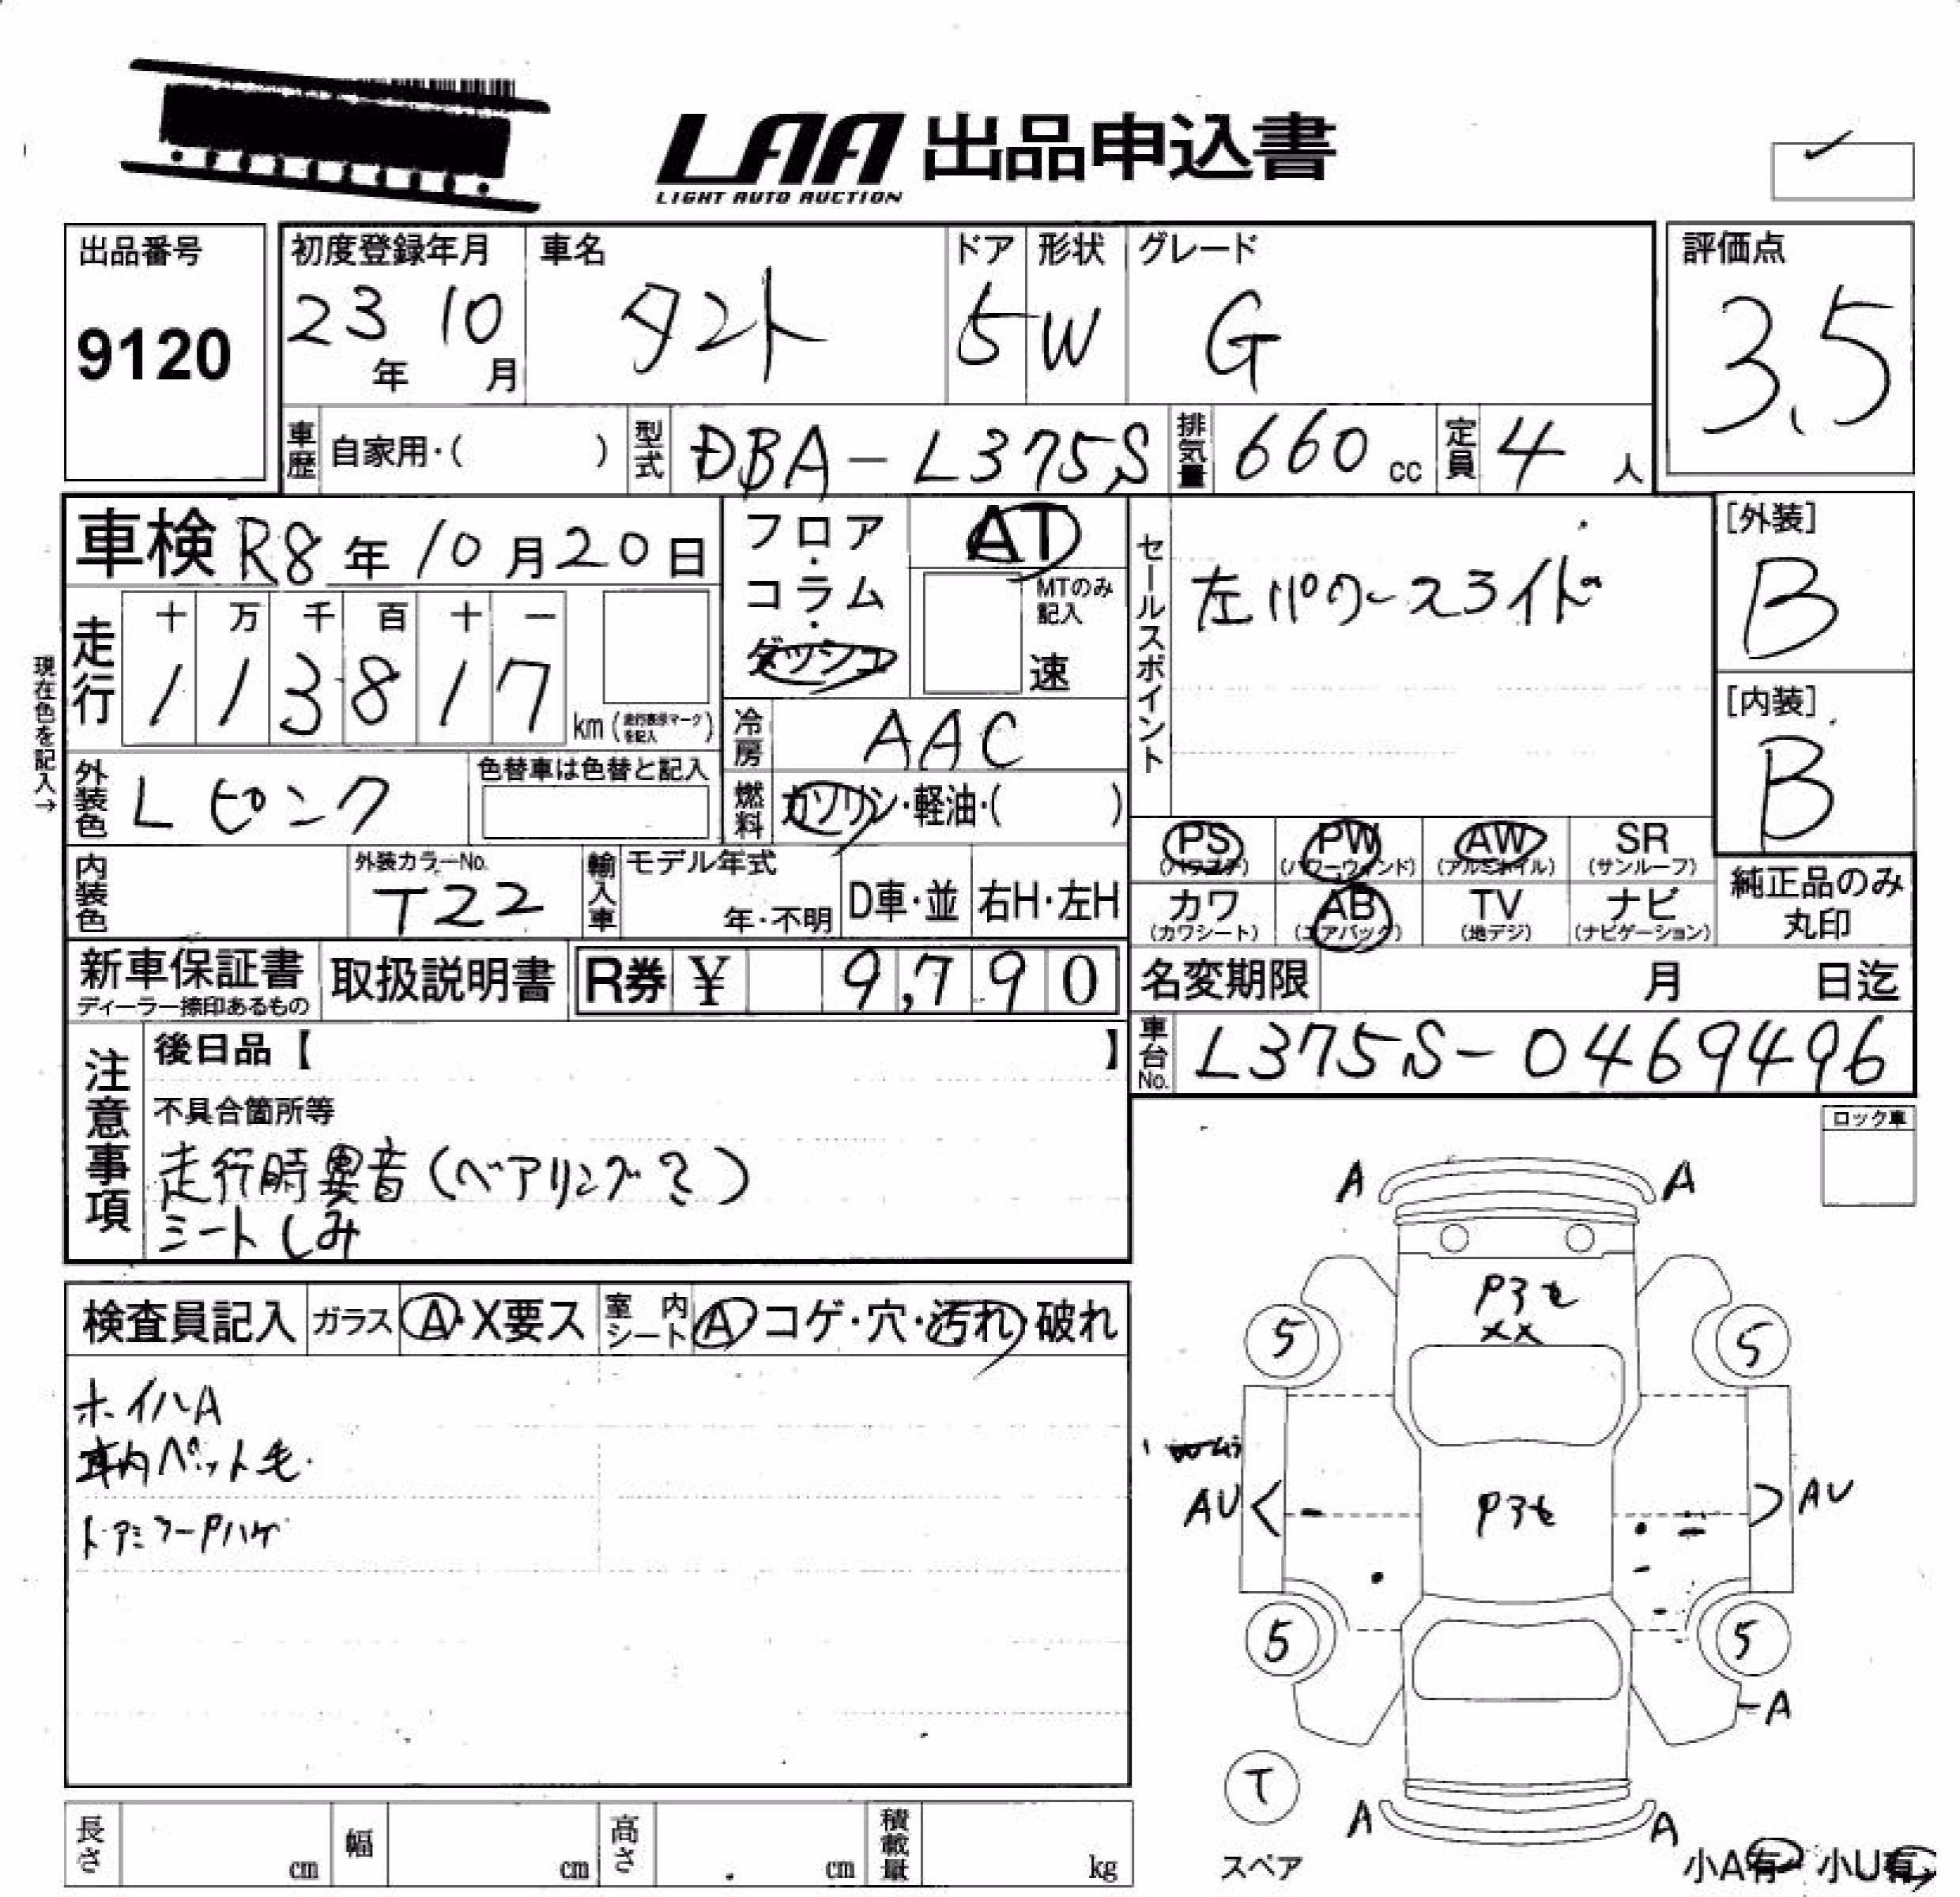 LAA 出品申込書
LIGHT AUTO AUCTION
出品番号
9120
初度登録年月
23年 10月
車名
タント
ドア
5
形状
W
グレード
G
評価点
3.5
車歴 自家用・( )
型式 DBA-L375S
排気量 660 cc
定員 4 人
車検 R8年 10月 20日
フロア・コラム・ダッシュ
AT
MTのみ記入
速
セールスポイント
左パワースライド
[外装]
B
[内装]
B
現在色を記入→
走行 十 万 千 百 十 一
1 1 3 8 1 7 km (走行表示マークを記入)
冷房 AAC
燃料 ガソリン・軽油・( )
外装色 Lピンク
色替車は色替と記入
内装色
外装カラーNo.
T22
輸入車 モデル年式
年・不明
D車・並
右H・左H
PS (パワステ)
PW (パワーウィンド)
AW (アルミホイル)
SR (サンルーフ)
カワ (カワシート)
AB (エアバック)
TV (地デジ)
ナビ (ナビゲーション)
純正品のみ丸印
新車保証書
ディーラー捺印あるもの
取扱説明書
R券 ¥ 9,790
名変期限 月 日迄
車台No. L375S-0469496
注意事項
後日品【 】
不具合箇所等
走行時異音(ベアリング?)
シートしみ
ロック車
検査員記入
ガラス A・X要ス
室内シート A・コゲ・穴・汚れ・破れ
ホイハA
車内ペット毛
A A
5 5
XX
AU AU
5 5
A
T
スペア
A A
小A有 小U有
長さ cm
幅 cm
高さ cm
積載量 kg